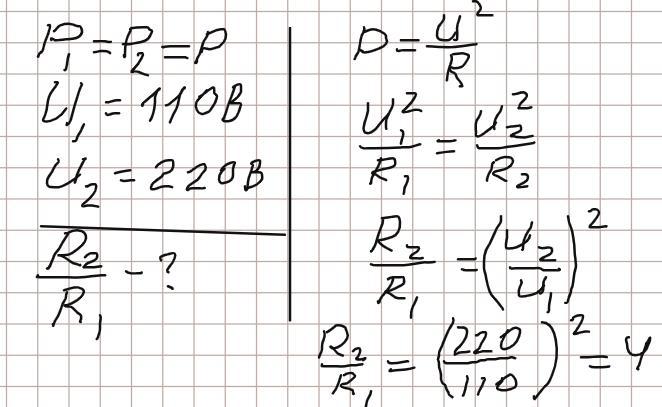 P₁ = P₂ = P
U₁ = 110В
U₂ = 220В
R₂/R₁ - ?
P = U²/R
U₁²/R₁ = U₂²/R₂
R₂/R₁ = (U₂/U₁)²
R₂/R₁ = (220/110)² = 4